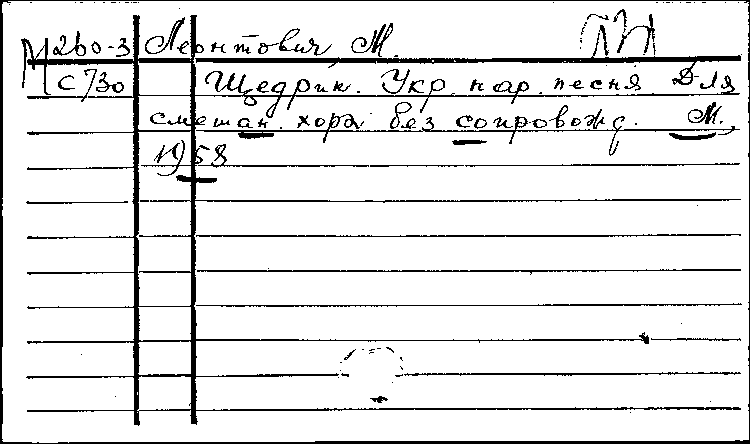 М 260-3 Леонтович, М.
С 730 Щедрик. Укр. нар. песня. Для
смешан. хора без сопровожд. М.,
1958